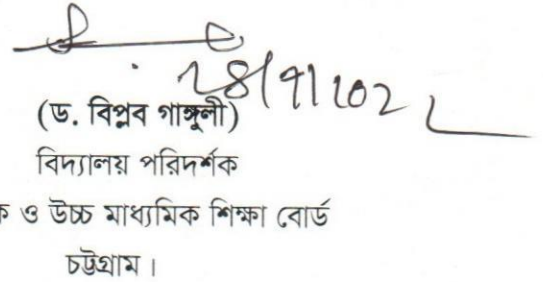 (ড. বিপ্লব গাঙ্গুলী)
বিদ্যালয় পরিদর্শক
ক ও উচ্চ মাধ্যমিক শিক্ষা বোর্ড
চট্টগ্রাম।